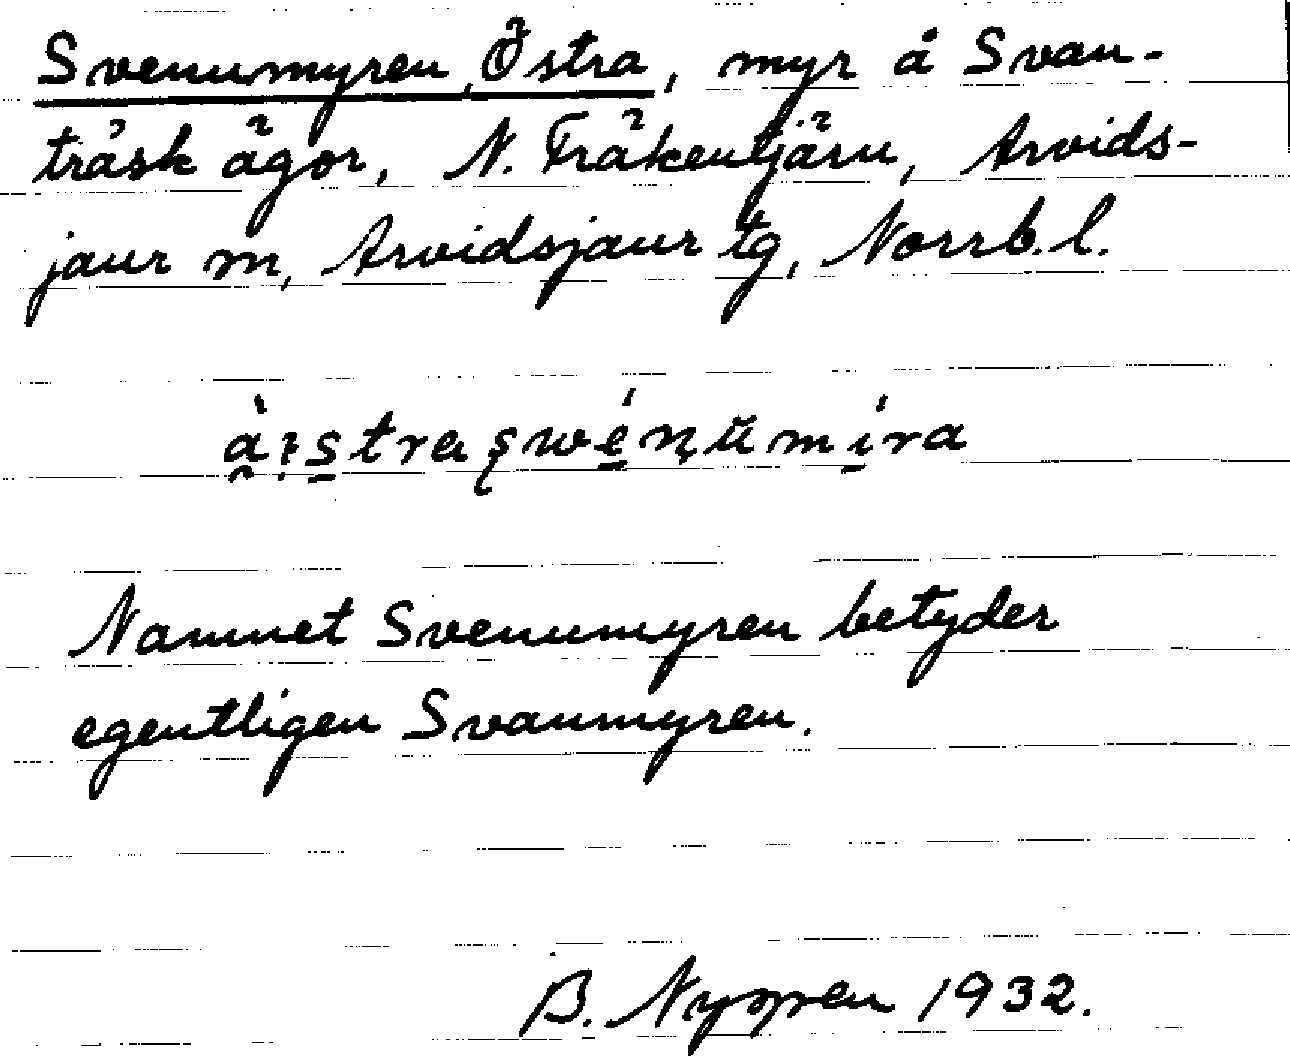 Svenumyren, Östra, myr å Svan-
träsk ägor, N. Fräkentjärn, Arvids-
jaur sn, Arvidsjaur tg, Norrb. l.
Namnet Svenumyren betyder
egentligen Svanmyren.
B. 1932.